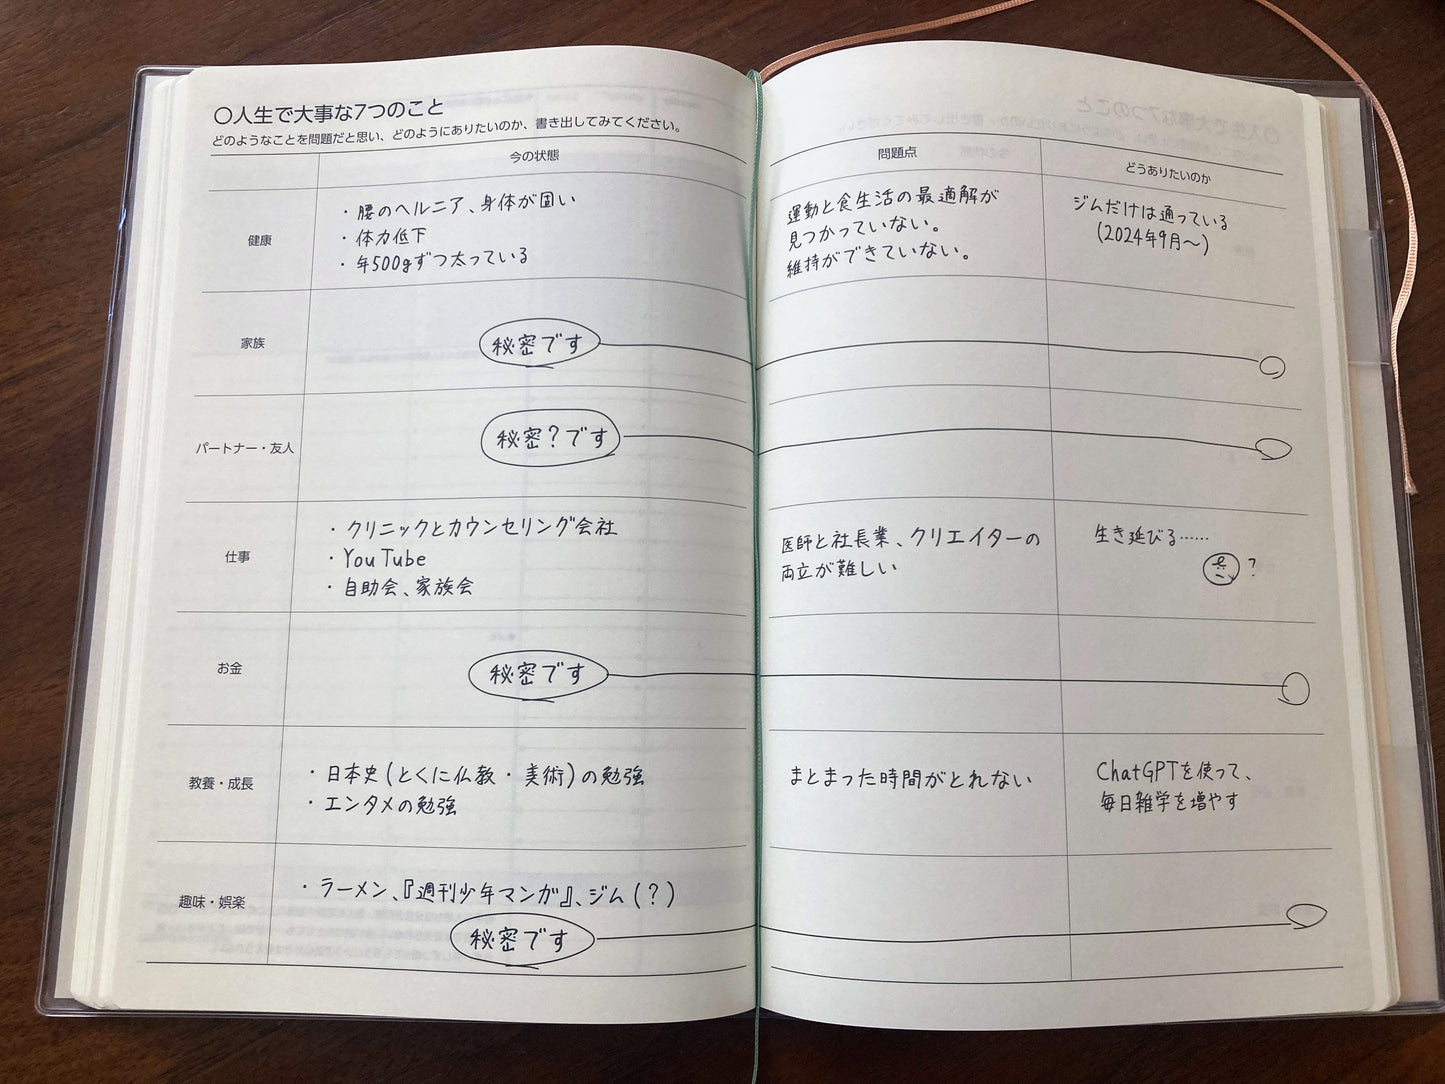 〇人生で大事な7つのこと
どのようなことを問題だと思い、どのようにありたいのか、書き出してみてください。
今の状態
問題点
どうありたいのか
健康
・腰のヘルニア、身体が固い
・体力低下
・年500gずつ太っている
運動と食生活の最適解が
見つかっていない。
維持ができていない。
ジムだけは通っている
(2024年9月〜)
家族
秘密です
パートナー・友人
秘密?です
仕事
・クリニックとカウンセリング会社
・YouTube
・自助会、家族会
医師と社長業、クリエイターの
両立が難しい
生き延びる……
?
お金
秘密です
教養・成長
・日本史(とくに仏教・美術)の勉強
・エンタメの勉強
まとまった時間がとれない
ChatGPTを使って、
毎日雑学を増やす
趣味・娯楽
・ラーメン、『週刊少年マンガ』、ジム(?)
秘密です